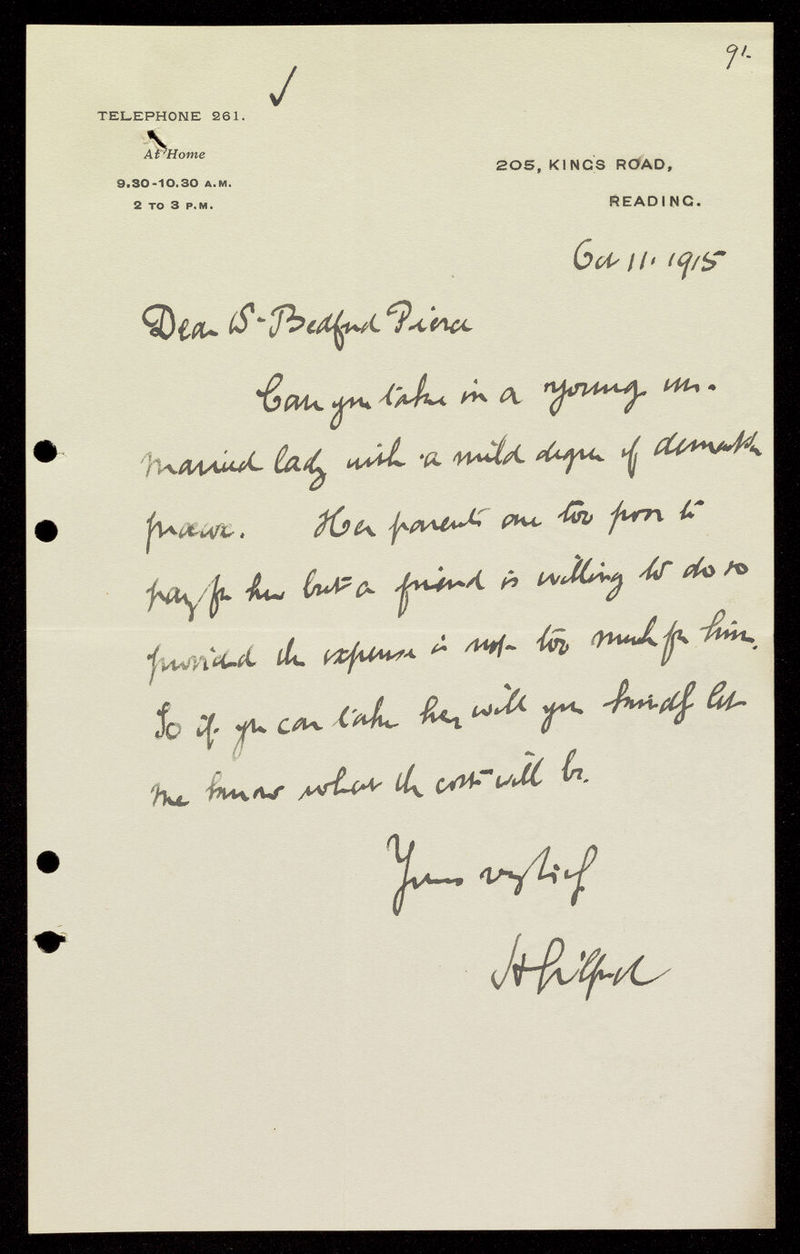 91.
TELEPHONE 261.
At Home
9.30-10.30 A.M.
2 TO 3 P.M.
205, KINGS ROAD,
READING.
Oct 11. 1915
Dear Dr Bedford Pierce
Can you take in a young un-
married lady with a mild degree of dementia
praecox. Her parents are too poor to
pay for her but a friend is willing to do so
provided the expense is not too much for him.
So if you can take her, will you kindly let
me know what the cost will be.
Yours very truly
H Gilford